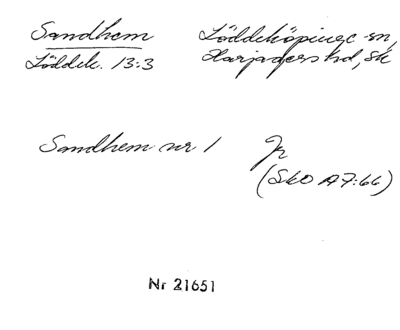 Sandhem
Löddek. 13:3
Löddeköpinge sn,
Harjagers hd, Sk
Sandhem nr 1
Jr
(SkO A7:66)
Nr 21651